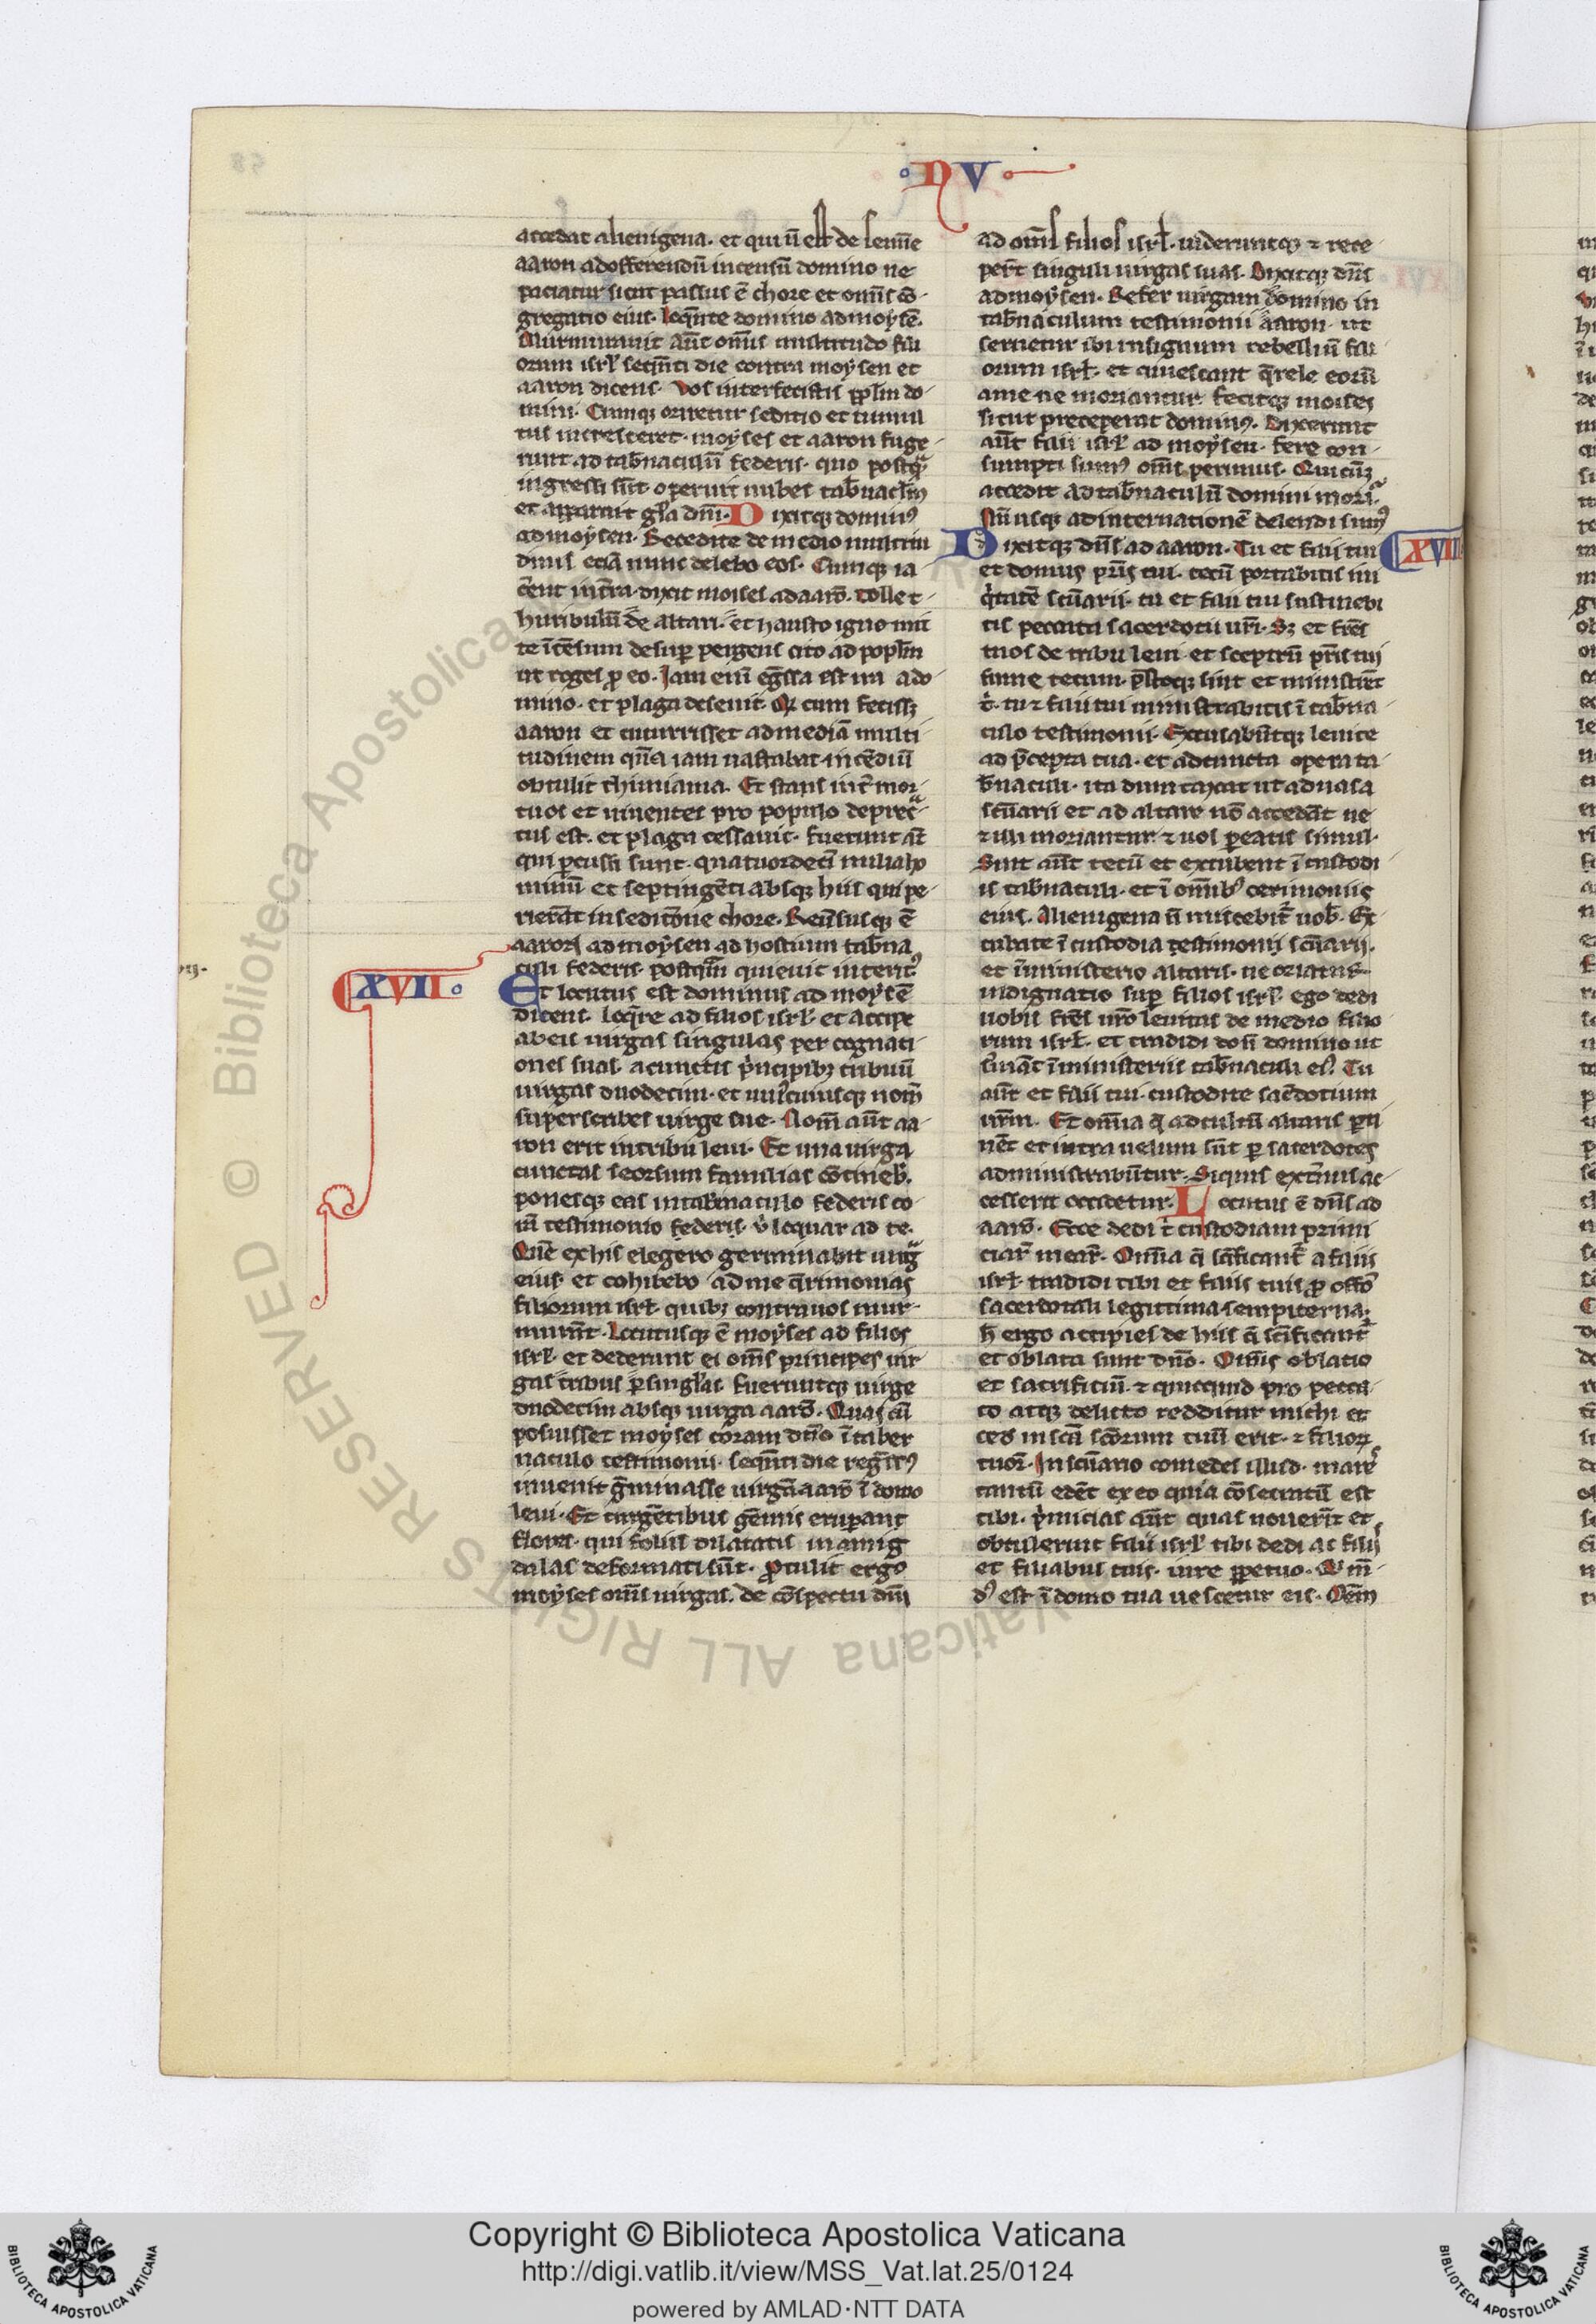 NV
accedat alienigena. et qui n̄ est de semīe
aaron ad offerendū incensū domino ne
paciatur sicut passus ē chore et om̄is cō-
gregatio eius. loqn̄te domino ad moysē.
Murmurauit aūt om̄is multitudo fili
orum isrl̄ seqn̄ti die contra moysen et
aaron dicens. Vos interfecistis pp̄lm do-
mini. Cumq; oriretur seditio et tumul
tus incresceret. moyses et aaron fuge-
runt ad tab̄naculū federis. quo postq̄ꝫ
ingressi sūt operuit nubes tab̄naclm̄
et apparuit gl̄a dn̄i. Dixitq; dominꝰ
ad moysen. Recedite de medio multitu
dinis etiā nunc delebo eos. Cumq; ia-
cērent in tr̄ra. dixit moises ad aarō. tolle t-
huribulū de altari. et hausto igne mit
te īcēsum desup̄ pergens cito ad popl̄m
ut roges ꝓ eo. Jam enī eḡssa est ira a do-
mino. et plaga deseuit. Qđ cum fecissꝫ
aaron et cucurrisset ad mediā multi-
tudinem quā iam uastabat incēdiū
obtulit thimiama. Et stans int̄ mor-
tuos et uiuentes pro populo deprec̄a-
tus est. et plaga cessauit. fuerunt aūt
qui ꝑcussi sunt. quatuordecī milia ho
minū et septingēti absq; hiis qui pe-
rierāt in seditōne chore. Reūsusq; ē
aaron ad moysen ad hostium tab̄na
culi federis. postqm̄ quieuit interitꝰ
XVII.
Et locutus est dominus ad moysē
dicens. loqr̄e ad filios isrl̄ et accipe
ab eis uirgas singulas per cognati-
ones suas. a cunctis pͥncipibꝫ tribuū
uirgas duodecim. et uniꝰcuiusq; nom̄
superscribes uirge sue. Nom̄ aūt aa-
ron erit in tribu leui. Et una uirga
cunctas seorsum familias cōtineb̄.
ponesq; eas in tab̄naculo federis co-
rā testimonio federis. ubi loquar ad te.
Quē ex his elegero germinabit uirga
eius. et cohibebo a d me qr̄imonias
filiorum isrl̄ quibꝫ contra uos mur-
murant. Locutusq; ē moyses ad filios
isrl̄. et dederunt ei om̄s principes uir-
gas tribus ꝑ singl̄as. fueruntq; uirge
duodecim absq; uirga aarō. Quas cū
posuisset moyses coram dn̄o ī taber
naculo testimonii. seqn̄ti die regressꝰ
inuenit ḡminasse uirgā aarō ī domo
leui. Et turgētibus gēmis eruperant
flores. qui foliis dilatatis in amig
dalas deformati sūt. ꝓtulit ergo
moyses om̄s uirgas. de cōspectu dn̄i
ad om̄s filios isrl̄. uideruntq; ⁊ rece-
pert̄ singuli uirgas suas. Dixitq; dn̄s
ad moysen. Refer uirgam domino in
tab̄naculum testimonii aaron. ut
seruetur ibi in signum rebelliū fili-
orum isrl̄. et quiescant q̄rele eorū
a me ne moriantur. fecitq; moises
sicut preceperat dominꝰ. Dixerunt
aūt filii isrl̄ ad moysen. Ecce con-
sumpti sumꝰ om̄s perimus. Quicūꝫ
accedit ad tab̄naculū domini morit̄
Nū usq; ad internationē delendi sumꝰ
XVIII
Dixitq; dn̄s ad aaron. Tu et filii tui
et domus pr̄is tui. tecū portabitis ini
qͥtatē scūarii. tu et filii tui sustinebi
tis peccata sacerdotii ur̄i. Sꝫ et fr̄es
tuos de tribu leui. et sceptrū pr̄is tui
sume tecum. p̄stoq; sint et ministrēt
t̄. tu ⁊ filii tui ministrabitis ī tab̄na-
culo testimonii. Excubabūtq; leuite
ad p̄cepta tua. et ad cuncta opera ta-
b̄naculi. ita dum taxat ut ad uasa
scūarii et ad altare nō accedāt ne
⁊ illi moriantur. ⁊ uos ꝑeatis simul.
Sint aūt tecū et excubent ī custodi-
is tab̄naculi. et ī om̄ibꝰ cerimoniis
eius. Alienigena n̄ miscebit̄ uob̄. Ex
cubate ī custodia testimonii scūarii.
et ī ministerio altaris. ne oriatur
indignatio sup̄ filios isrl̄. ego dedi
uobis fr̄es ur̄os leuitas de medio filio
rum isrl̄. et tradidi donū domino ut
s̄uiāt ī ministeriis tab̄naculi eiꝰ. Tu
aūt et filii tui. custodite sac̄dotium
ur̄m. Et om̄ia q̄ ad cultū altaris ꝑti
nēt et intra uelum sūt ꝑ sacerdotes
administrabūtur. Siquis ext̄nus ac-
cesserit occidetur. Locutus ē dn̄s ad
aarō. Ecce dedi t̄ custodiam primi
ciar̄ mear̄. Om̄ia q̄ sc̄ificant̄ a filiis
isrl̄. tradidi tibi et filiis tuis ꝓ offō
sacerdotali legittima sempiterna.
h̄ ergo accipies de hiis q̄ sc̄ificant̄
et oblata sunt dn̄o. Om̄is oblatio
et sacrificiū. ⁊ quicquid pro pecca-
to atq; delicto redditur michi et
ced in scā scōrum tuū erit. ⁊ filior̄
tuor̄. In scūario comedes illud. mares
tantū edēt ex eo quia cōsecratū est
tibi. pͥmicias aūt quas uouerit et
obtulerint filii isrl̄ tibi dedi ac filiis
et filiabus tuis. iure ꝑpetuo. Qi mū-
dꝰ est ī domo tua uescetur eis. Oēm
Copyright © Biblioteca Apostolica Vaticana
http://digi.vatlib.it/view/MSS_Vat.lat.25/0124
powered by AMLAD·NTT DATA